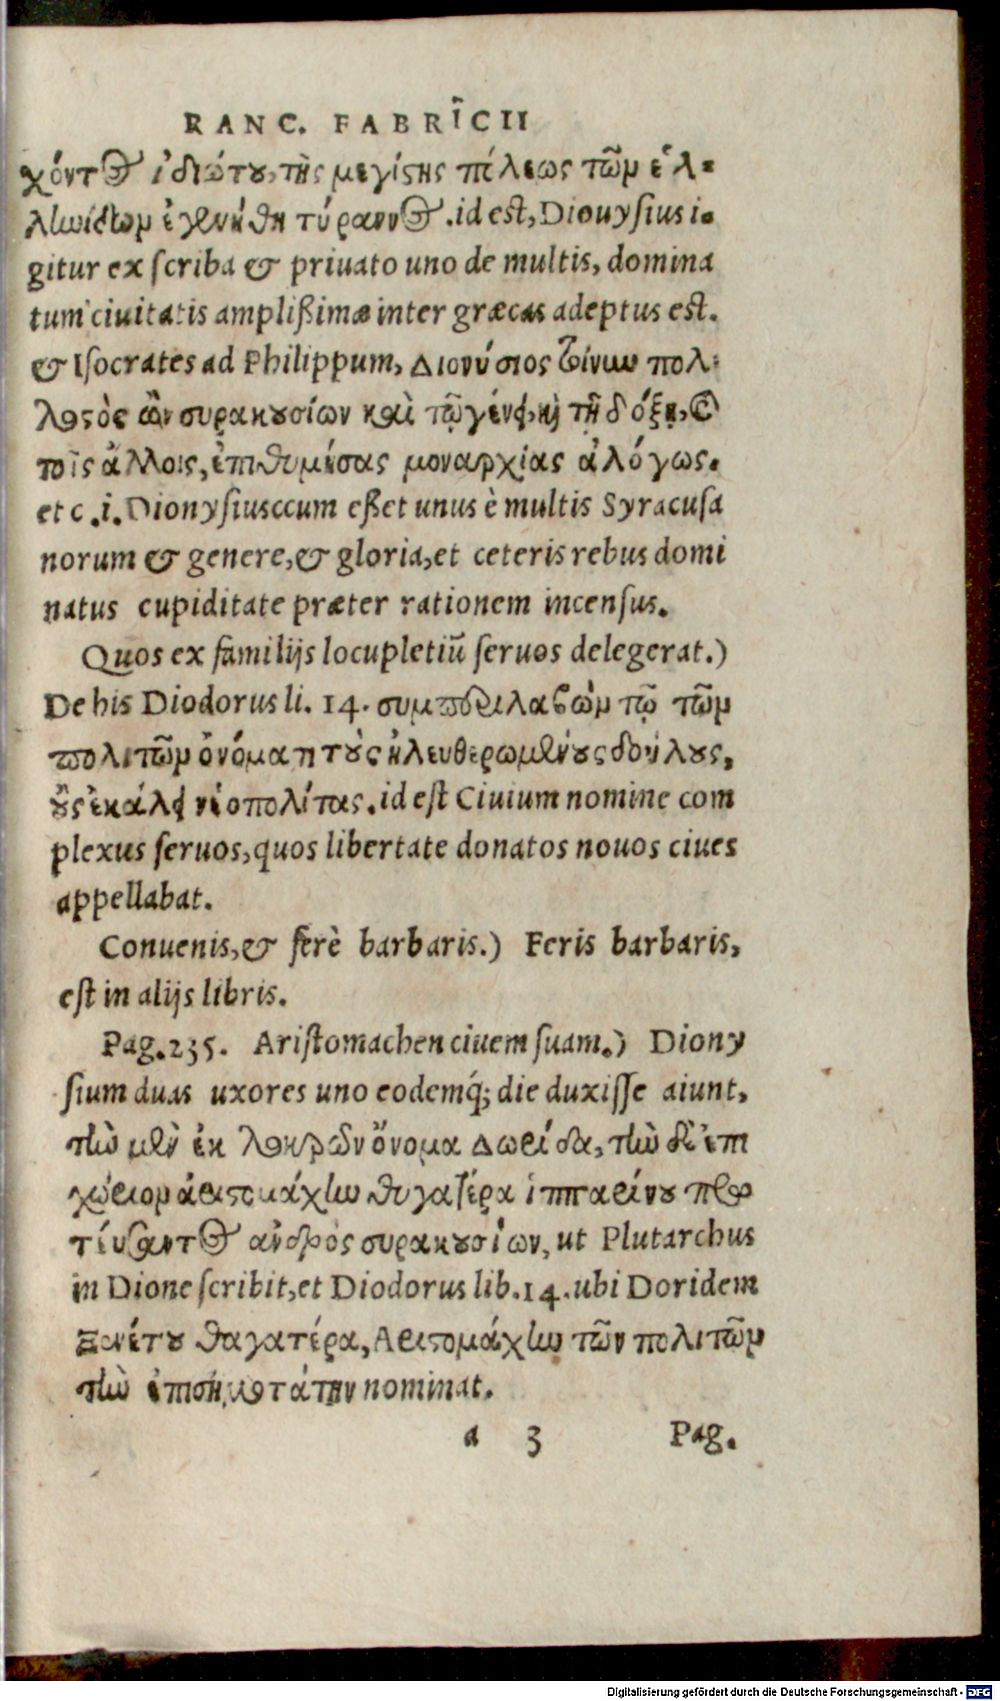 RANC. FABRĪCII
χόντος ἰδιώτου, τῆς μεγίστης πόλεως τῶν ἑλ-
λωνίδων ἐγενήθη τύραννος. id est, Dionysius i-
gitur ex scriba & priuato uno de multis, domina
tum ciuitatis amplißimæ inter græcas adeptus est.
& Isocrates ad Philippum, Διονύσιος γίνων πολ-
λοστὸς ὢν συρακουσίων καὶ τῷ γένει, καὶ τῇ δόξῃ, καὶ
τοῖς ἄλλοις, ἐπιθυμήσας μοναρχίας ἀλόγως.
et c .i. Dionysiusccum eßet unus è multis Syracusa
norum & genere, & gloria, et ceteris rebus domi
natus cupiditate præter rationem incensus.
Quos ex familijs locupletiū seruos delegerat.)
De his Diodorus li. 14. συμπεριλαβὼν τῷ τῶν
πολιτῶν ὀνόματι τοὺς ἠλευθερωμένους δούλους,
οὓς ἐκάλει νεοπολίτας. id est Ciuium nomine com
plexus seruos, quos libertate donatos nouos ciues
appellabat.
Conuenis, & ferè barbaris.) Feris barbaris,
est in alijs libris.
Pag. 235. Aristomachen ciuem suam.) Diony
sium duas uxores uno eodemq́; die duxisse aiunt,
τὴν μὲν ἐκ λοκρῶν ὄνομα Δωρίδα, τὴν δὲ ἐπι
χώριον ἀριστομάχην θυγατέρα ἱππαρίνου πρω
τεύσαντος ἀνδρὸς συρακουσίων, ut Plutarchus
in Dione scribit, et Diodorus lib. 14. ubi Doridem
Ξενέτου θαγατέρα, Ἀριστομάχην τῶν πολιτῶν
τὴν ἐπισημοτάτην nominat.
a 3 Pag.
Digitalisierung gefördert durch die Deutsche Forschungsgemeinschaft - DFG